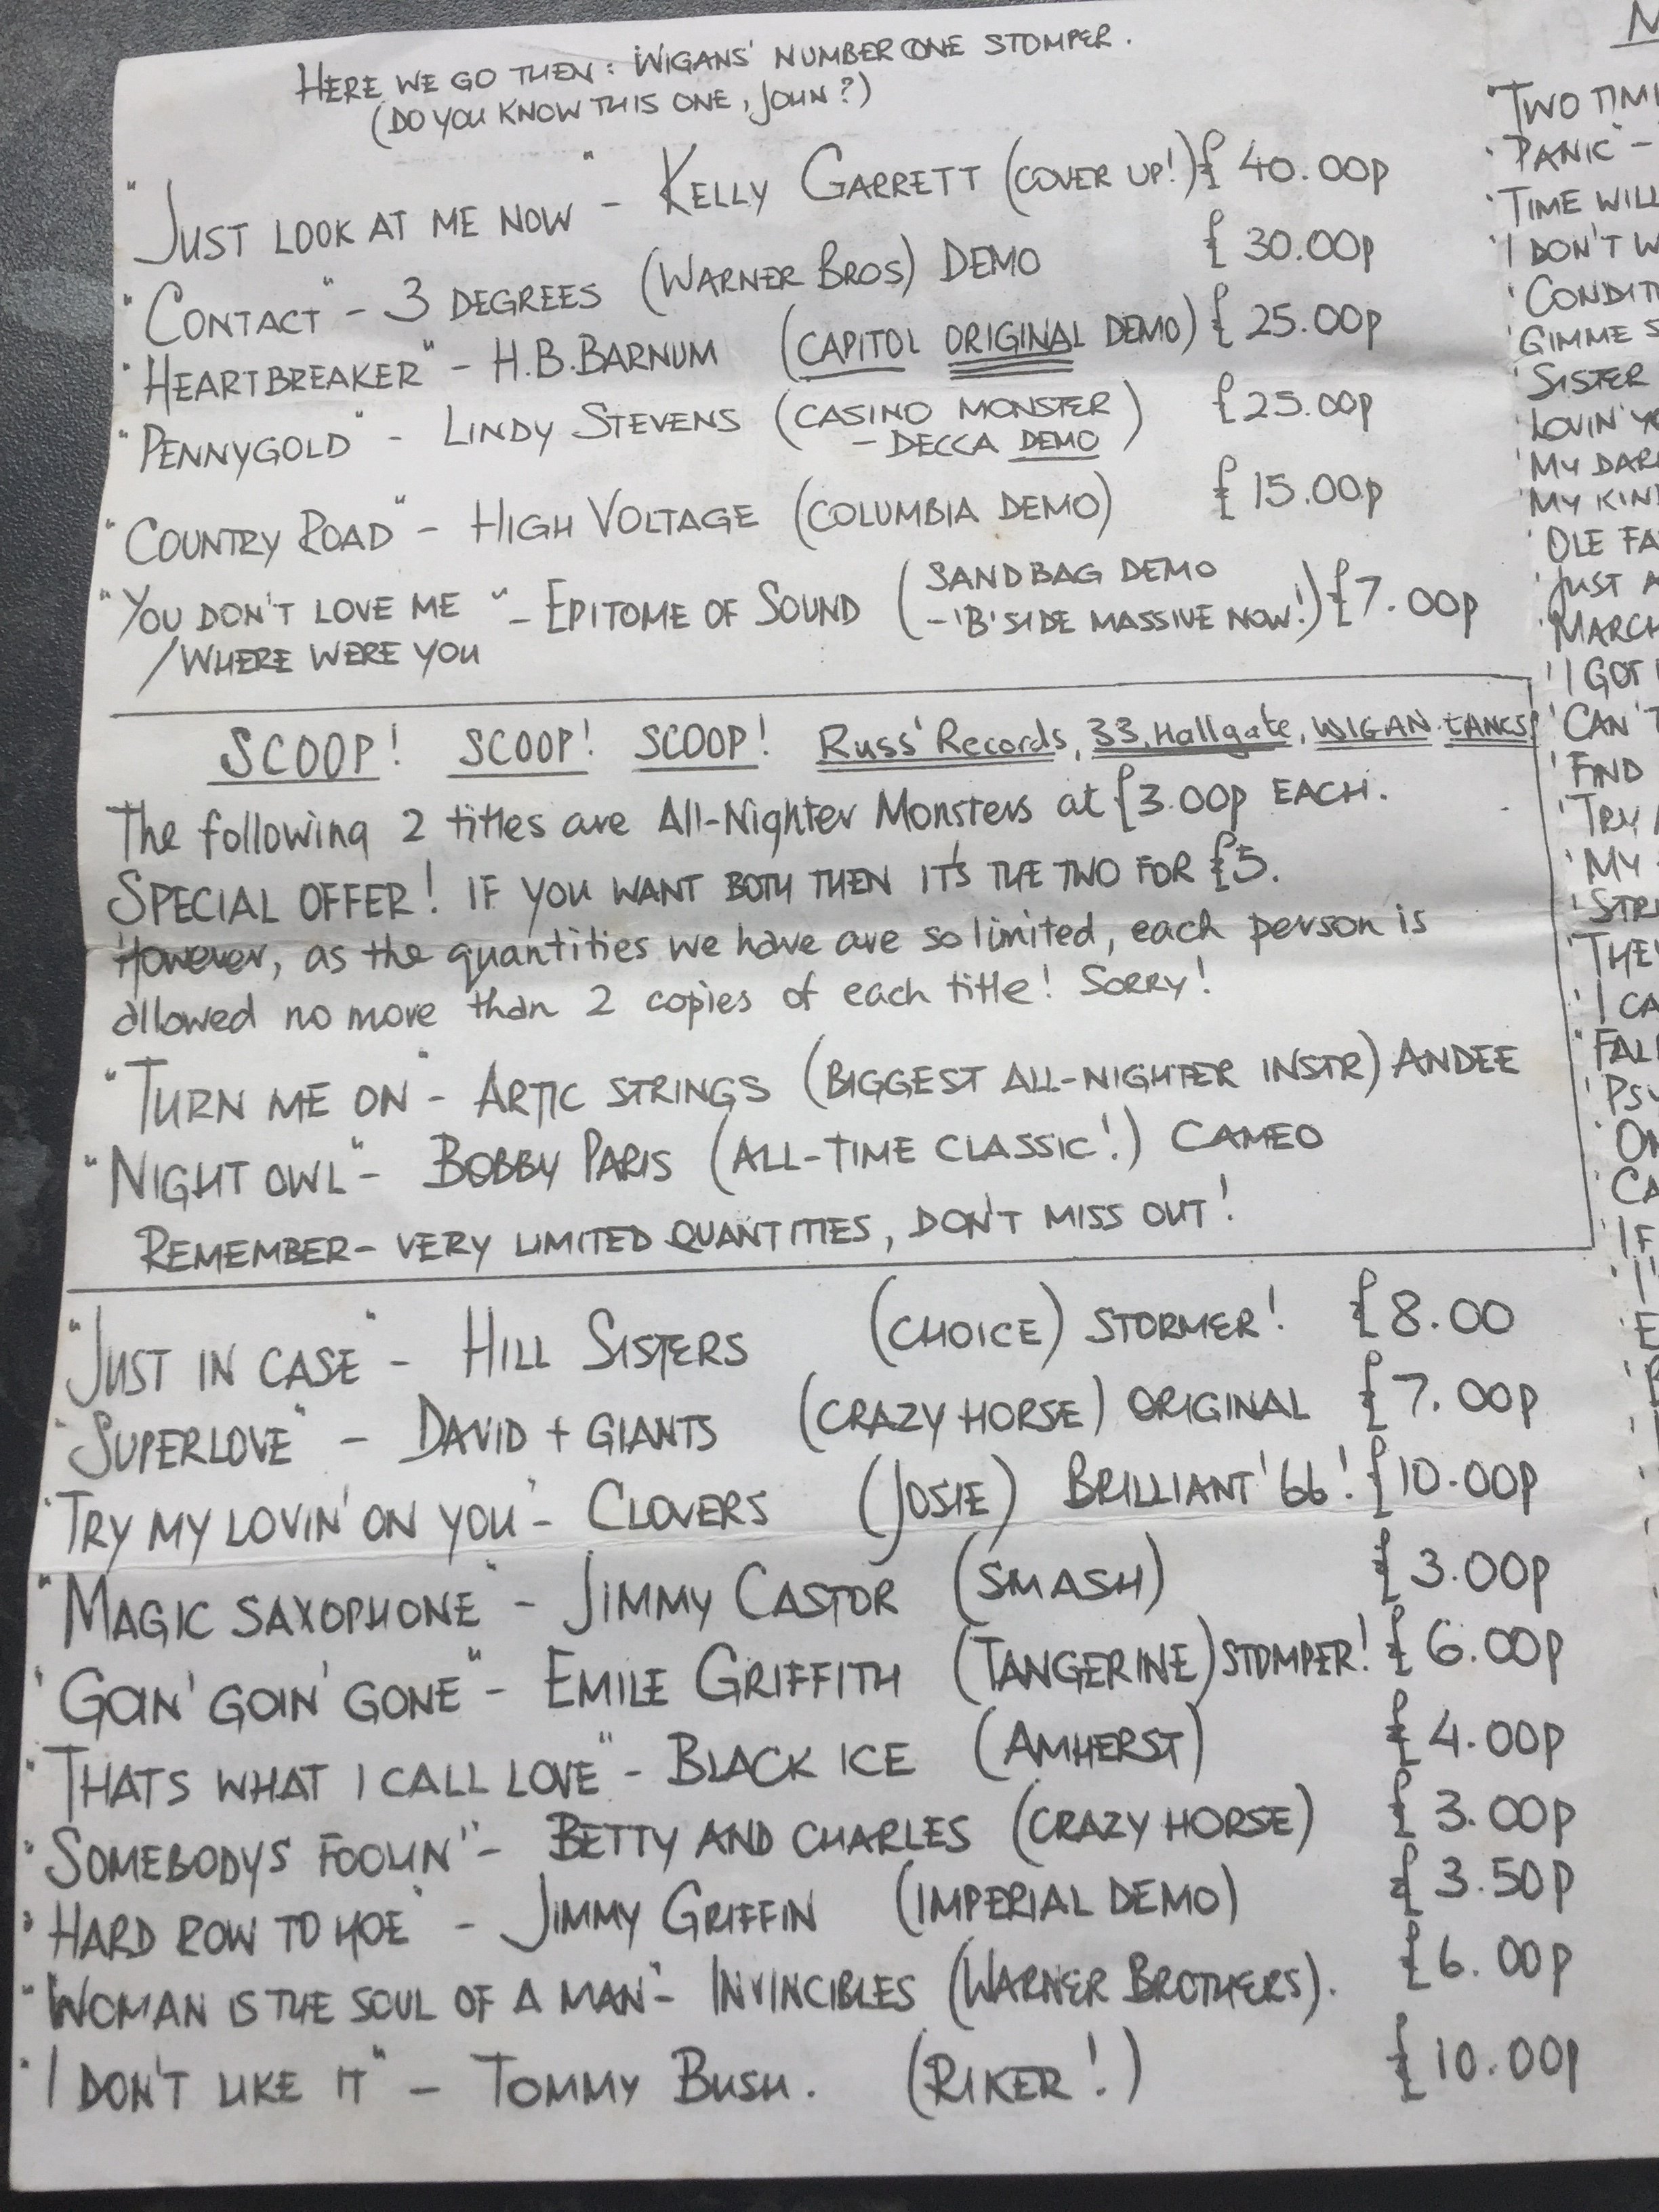 HERE WE GO THEN: WIGANS' NUMBER ONE STOMPER.
(DO YOU KNOW THIS ONE, JOHN?)
"JUST LOOK AT ME NOW" - KELLY GARRETT (COVER UP!) £40.00p
"CONTACT" - 3 DEGREES (WARNER BROS) DEMO £30.00p
"HEARTBREAKER" - H.B. BARNUM (CAPITOL ORIGINAL DEMO) £25.00p
"PENNYGOLD" - LINDY STEVENS (CASINO MONSTER - DECCA DEMO) £25.00p
"COUNTRY ROAD" - HIGH VOLTAGE (COLUMBIA DEMO) £15.00p
"YOU DON'T LOVE ME" - EPITOME OF SOUND (SANDBAG DEMO - 'B' SIDE MASSIVE NOW!) £7.00p
/WHERE WERE YOU
SCOOP! SCOOP! SCOOP! Russ' Records, 33, Hallgate, WIGAN LANCS!
The following 2 titles are All-Nighter Monsters at £3.00p EACH.
SPECIAL OFFER! IF YOU WANT BOTH THEN IT'S THE TWO FOR £5.
However, as the quantities we have are so limited, each person is
allowed no more than 2 copies of each title! SORRY!
"TURN ME ON" - ARTIC STRINGS (BIGGEST ALL-NIGHTER INSTR) ANDEE
"NIGHT OWL" - BOBBY PARIS (ALL-TIME CLASSIC!) CAMEO
REMEMBER - VERY LIMITED QUANTITIES, DON'T MISS OUT!
"JUST IN CASE" - HILL SISTERS (CHOICE) STORMER! £8.00
"SUPERLOVE" - DAVID + GIANTS (CRAZY HORSE) ORIGINAL £7.00p
'TRY MY LOVIN' ON YOU' - CLOVERS (JOSIE) BRILLIANT '66'! £10.00p
"MAGIC SAXOPHONE" - JIMMY CASTOR (SMASH) £3.00p
'GOIN' GOIN' GONE" - EMILE GRIFFITH (TANGERINE) STOMPER! £6.00p
"THATS WHAT I CALL LOVE" - BLACK ICE (AMHERST) £4.00p
"SOMEBODYS FOOLIN'" - BETTY AND CHARLES (CRAZY HORSE) £3.00p
"HARD ROW TO HOE" - JIMMY GRIFFIN (IMPERIAL DEMO) £3.50p
"WOMAN IS THE SOUL OF A MAN" - INVINCIBLES (WARNER BROTHERS). £6.00p
"I DON'T LIKE IT" - TOMMY BUSH. (RIKER!) £10.00p
'TWO
'PANIC" -
'TIME WILL
'I DON'T
'GIMME
'SISTER
'LOVIN'
'MY
'MY
'OLE
'JUST
'MARCH
'I GOT
'CAN'T
'FIND
'TRY
'MY
'I
'IF